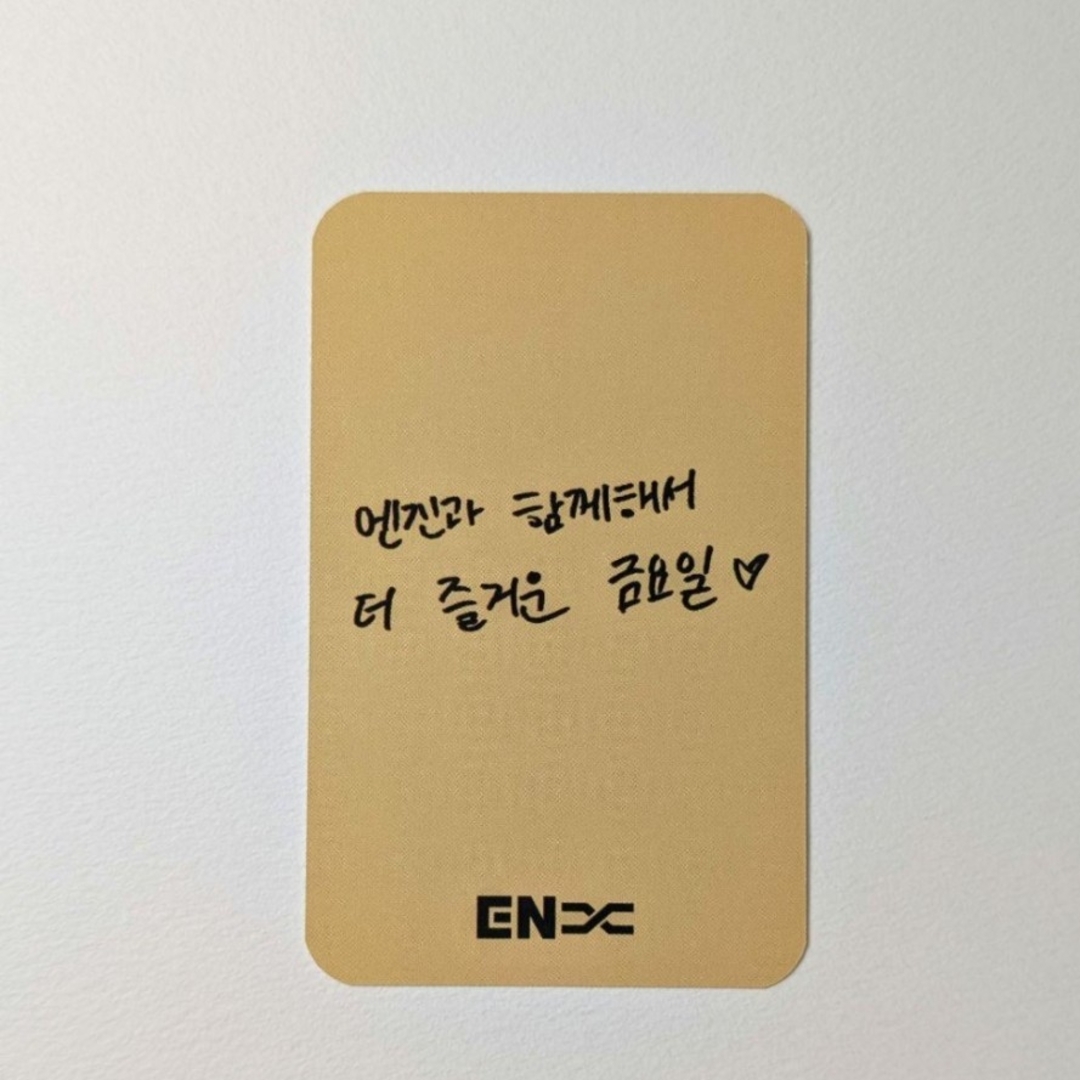 엔진과 함께해서
더 즐거운 금요일♡
EN